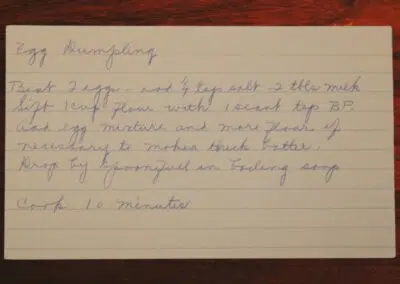 Egg Dumpling
Beat 2 eggs - add 1/4 tsp salt - 2 tbls milk
Sift 1 cup flour with 1 scant tsp BP.
Add egg mixture and more flour if
necessary to make a thick batter.
Drop by spoonfull in boiling soup
Cook 10 minutes